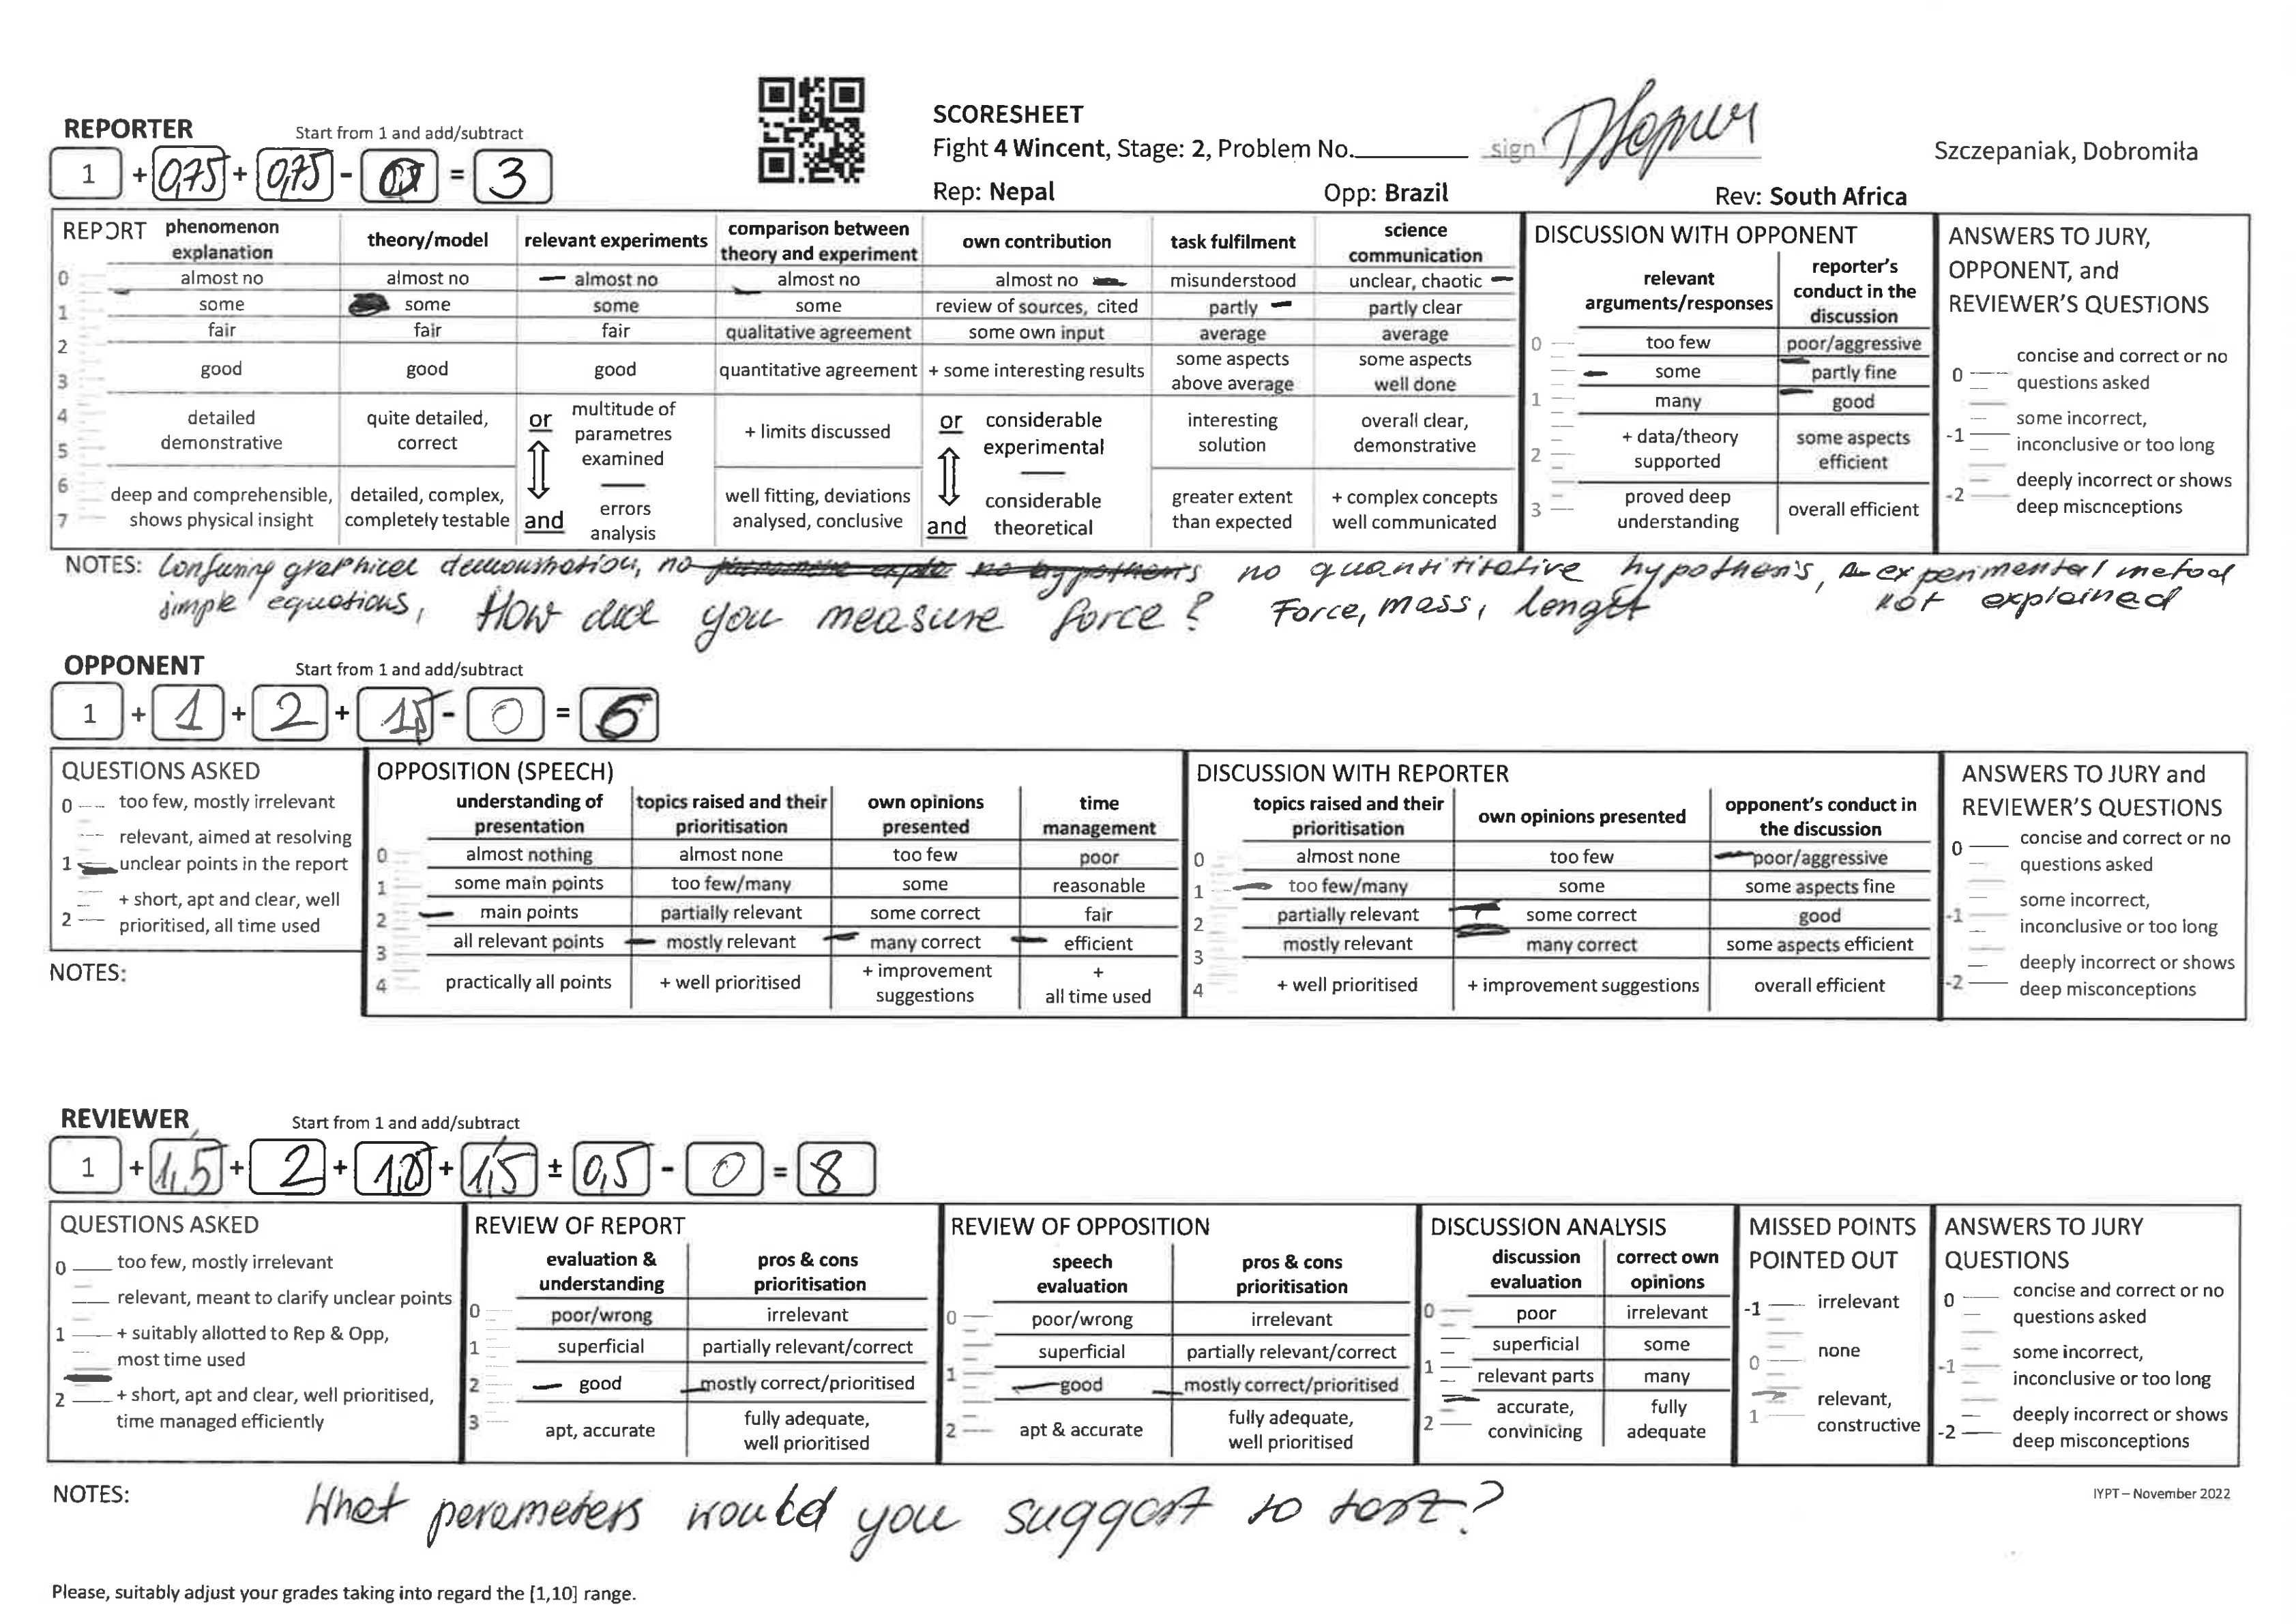 SCORESHEET
REPORTER Start from 1 and add/subtract
Fight 4 Wincent, Stage: 2, Problem No. sign
Szczepaniak, Dobromiła
1 + 0,75 + 0,75 - = 3
Rep: Nepal Opp: Brazil Rev: South Africa
REPORT
phenomenon explanation
theory/model
relevant experiments
comparison between theory and experiment
own contribution
task fulfilment
science communication
0 almost no almost no almost no almost no almost no misunderstood unclear, chaotic
1 some some some some review of sources, cited partly partly clear
fair fair fair qualitative agreement some own input average average
2
3 good good good quantitative agreement + some interesting results some aspects above average some aspects well done
4
5 detailed demonstrative quite detailed, correct or multitude of parametres examined + limits discussed or considerable experimental interesting solution overall clear, demonstrative
6
7 deep and comprehensible, shows physical insight detailed, complex, completely testable and errors analysis well fitting, deviations analysed, conclusive and considerable theoretical greater extent than expected + complex concepts well communicated
DISCUSSION WITH OPPONENT
relevant arguments/responses
reporter's conduct in the discussion
0 too few poor/aggressive
some partly fine
1 many good
2 + data/theory supported some aspects efficient
3 proved deep understanding overall efficient
ANSWERS TO JURY, OPPONENT, and REVIEWER'S QUESTIONS
0 concise and correct or no questions asked
-1 some incorrect, inconclusive or too long
-2 deeply incorrect or shows deep miscnceptions
NOTES: Confusing graphical demonstration, no no quantititative hypothesis, experimental metod
simple equations, How did you measure force? Force, mass, lenght not explained
OPPONENT Start from 1 and add/subtract
1 + 1 + 2 + 1,5 - 0 = 6
QUESTIONS ASKED
0 too few, mostly irrelevant
relevant, aimed at resolving
1 unclear points in the report
+ short, apt and clear, well
2 prioritised, all time used
NOTES:
OPPOSITION (SPEECH)
understanding of presentation
topics raised and their prioritisation
own opinions presented
time management
0 almost nothing almost none too few poor
1 some main points too few/many some reasonable
2 main points partially relevant some correct fair
3 all relevant points mostly relevant many correct efficient
4 practically all points + well prioritised + improvement suggestions + all time used
DISCUSSION WITH REPORTER
topics raised and their prioritisation
own opinions presented
opponent's conduct in the discussion
0 almost none too few poor/aggressive
1 too few/many some some aspects fine
2 partially relevant some correct good
3 mostly relevant many correct some aspects efficient
4 + well prioritised + improvement suggestions overall efficient
ANSWERS TO JURY and REVIEWER'S QUESTIONS
0 concise and correct or no questions asked
-1 some incorrect, inconclusive or too long
-2 deeply incorrect or shows deep misconceptions
REVIEWER Start from 1 and add/subtract
1 + 1,5 + 2 + + 1,5 ± 0,5 - 0 = 8
QUESTIONS ASKED
0 too few, mostly irrelevant
relevant, meant to clarify unclear points
1 + suitably allotted to Rep & Opp,
most time used
2 + short, apt and clear, well prioritised,
time managed efficiently
REVIEW OF REPORT
evaluation & understanding
pros & cons prioritisation
0 poor/wrong irrelevant
1 superficial partially relevant/correct
2 good mostly correct/prioritised
3 apt, accurate fully adequate, well prioritised
REVIEW OF OPPOSITION
speech evaluation
pros & cons prioritisation
0 poor/wrong irrelevant
superficial partially relevant/correct
1 good mostly correct/prioritised
2 apt & accurate fully adequate, well prioritised
DISCUSSION ANALYSIS
discussion evaluation
correct own opinions
0 poor irrelevant
superficial some
1 relevant parts many
2 accurate, convinicing fully adequate
MISSED POINTS POINTED OUT
-1 irrelevant
0 none
1 relevant, constructive
ANSWERS TO JURY QUESTIONS
0 concise and correct or no questions asked
-1 some incorrect, inconclusive or too long
-2 deeply incorrect or shows deep misconceptions
NOTES: What perameters would you suggest to test?
IYPT – November 2022
Please, suitably adjust your grades taking into regard the [1,10] range.